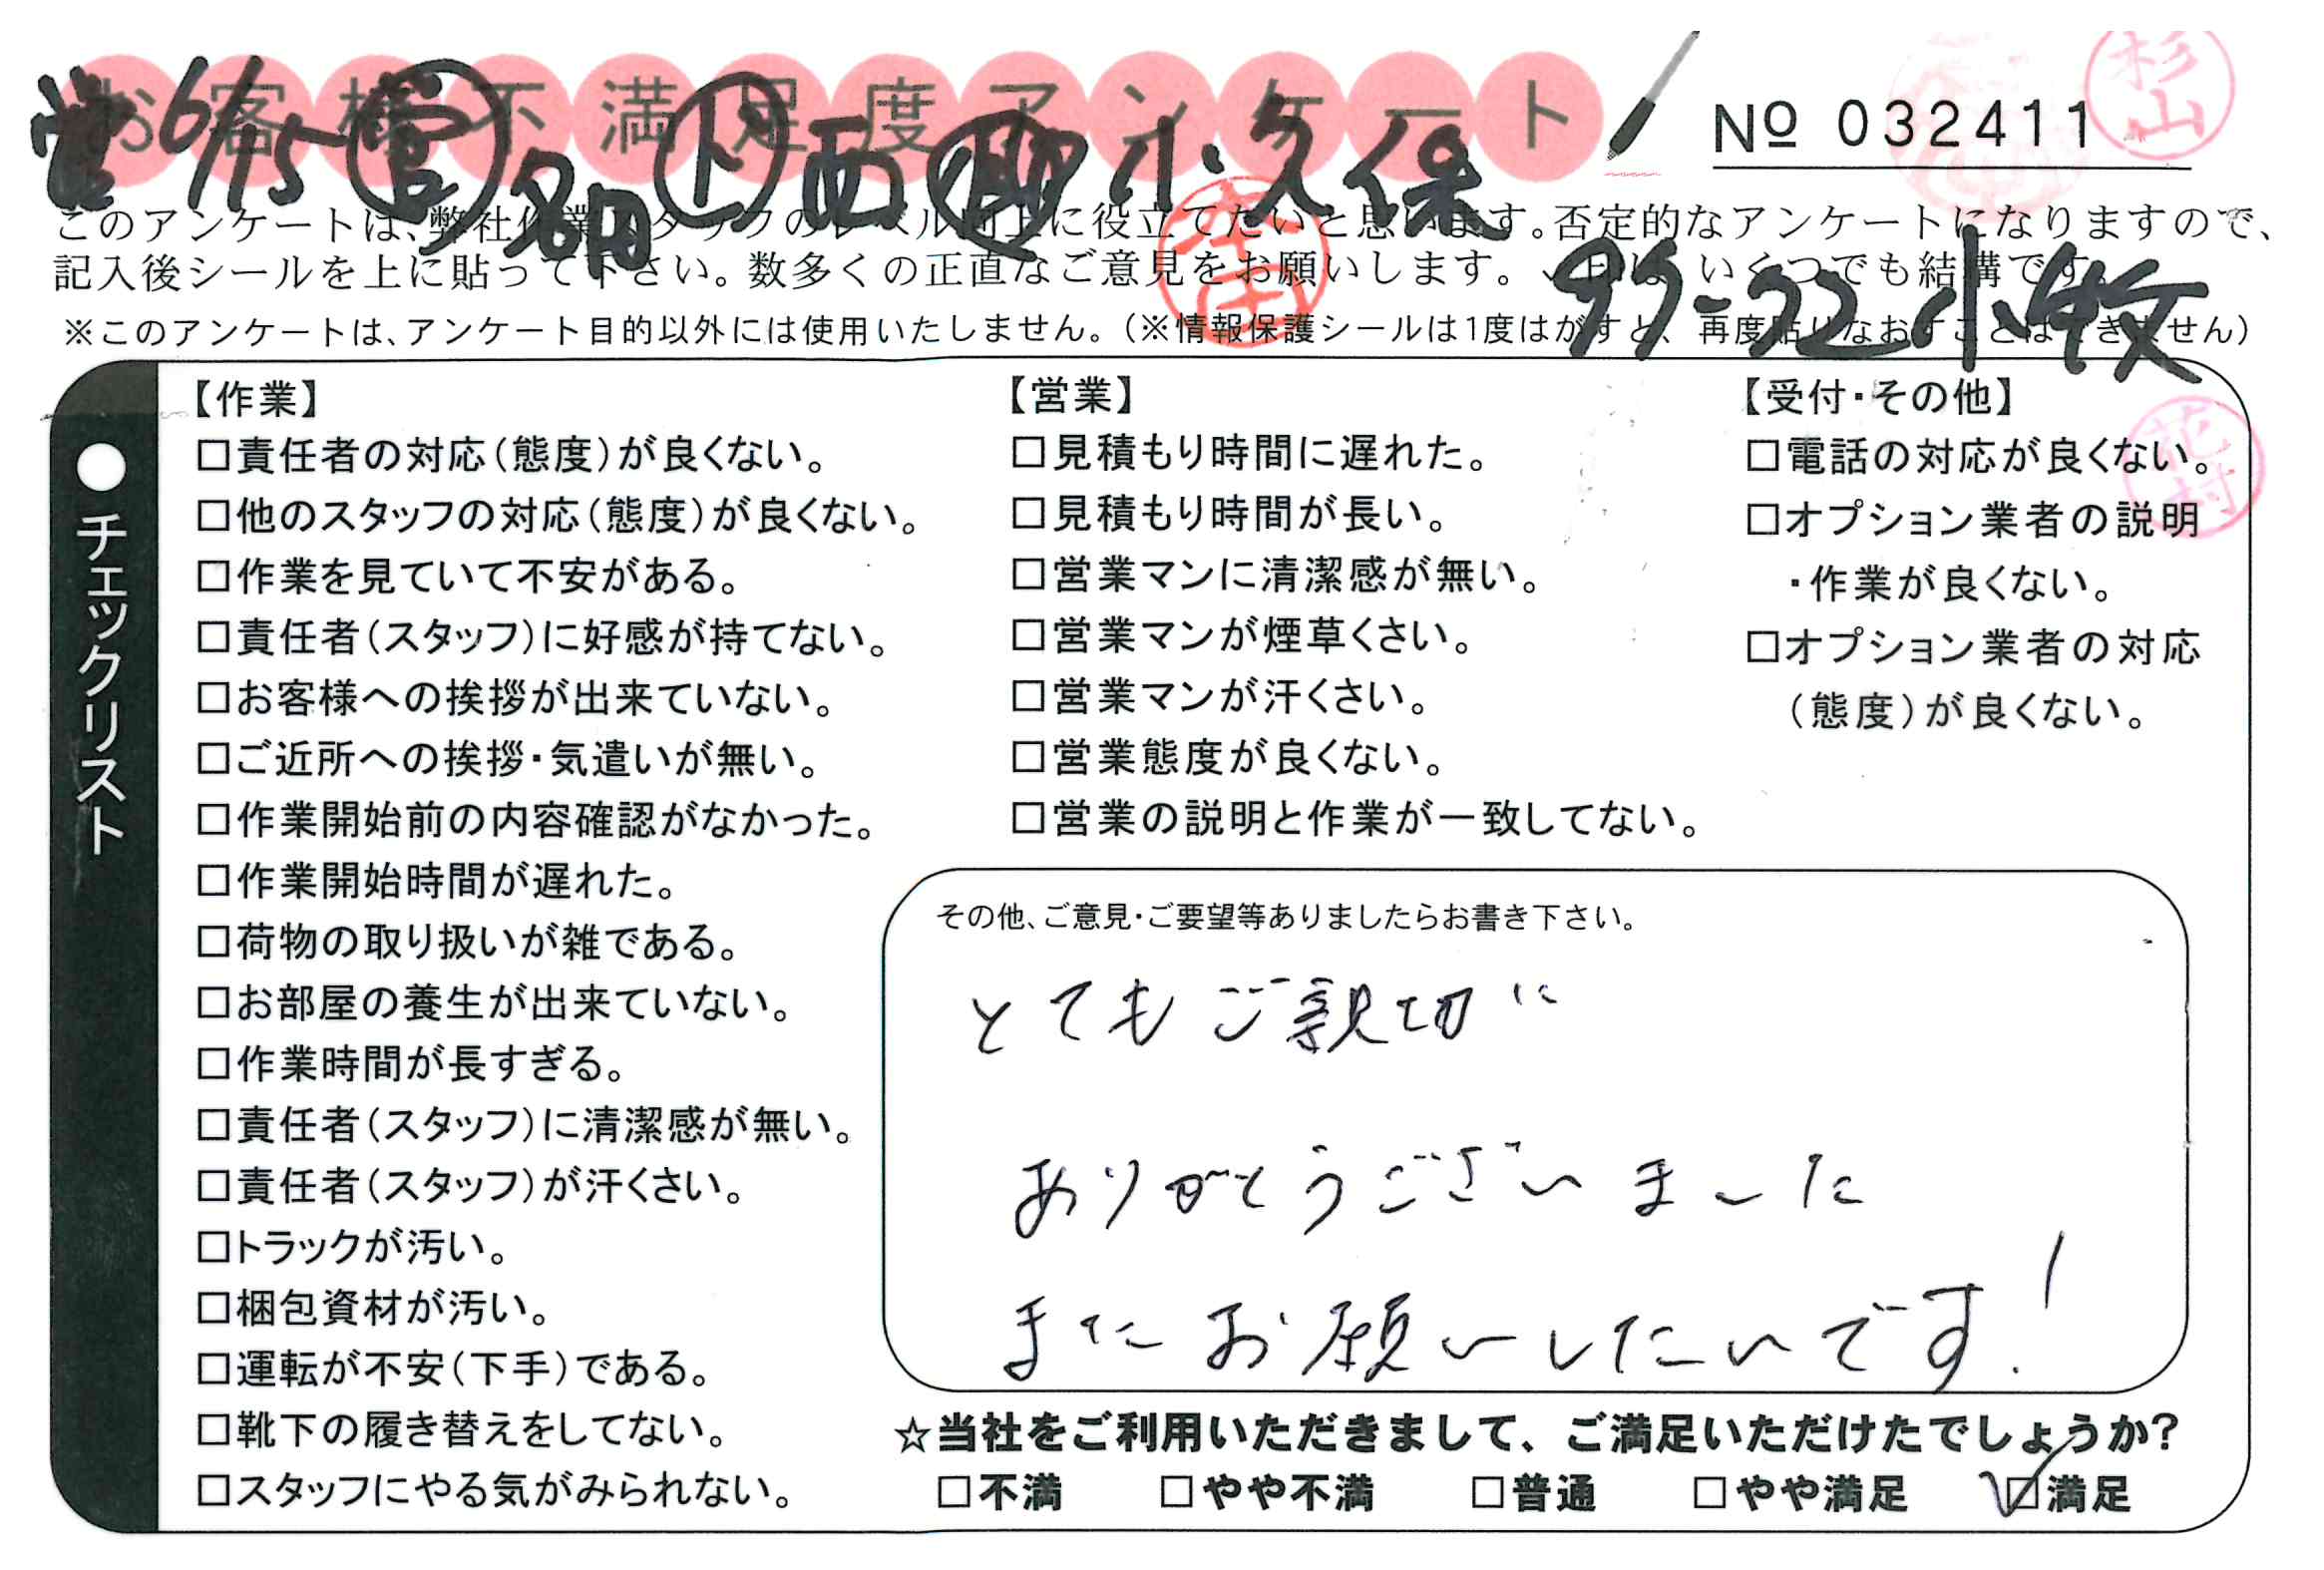 お客様不満足度アンケート
No 032411
杉山
6/15 営 ト 西 小久保
このアンケートは、弊社作業スタッフのレベル向上に役立てたいと思います。否定的なアンケートになりますので、
記入後シールを上に貼って下さい。数多くの正直なご意見をお願いします。 いくつでも結構です。
99-22 小牧
※このアンケートは、アンケート目的以外には使用いたしません。(※情報保護シールは1度はがすと、再度貼りなおすことはできません)
本田
花村
●チェックリスト
【作業】
□責任者の対応(態度)が良くない。
□他のスタッフの対応(態度)が良くない。
□作業を見ていて不安がある。
□責任者(スタッフ)に好感が持てない。
□お客様への挨拶が出来ていない。
□ご近所への挨拶・気遣いが無い。
□作業開始前の内容確認がなかった。
□作業開始時間が遅れた。
□荷物の取り扱いが雑である。
□お部屋の養生が出来ていない。
□作業時間が長すぎる。
□責任者(スタッフ)に清潔感が無い。
□責任者(スタッフ)が汗くさい。
□トラックが汚い。
□梱包資材が汚い。
□運転が不安(下手)である。
□靴下の履き替えをしてない。
□スタッフにやる気がみられない。
【営業】
□見積もり時間に遅れた。
□見積もり時間が長い。
□営業マンに清潔感が無い。
□営業マンが煙草くさい。
□営業マンが汗くさい。
□営業態度が良くない。
□営業の説明と作業が一致してない。
【受付・その他】
□電話の対応が良くない。
□オプション業者の説明
・作業が良くない。
□オプション業者の対応
(態度)が良くない。
その他、ご意見・ご要望等ありましたらお書き下さい。
とてもご親切に
ありがとうございました
またお願いしたいです!
☆当社をご利用いただきまして、ご満足いただけたでしょうか?
□不満 □やや不満 □普通 □やや満足 ☑満足